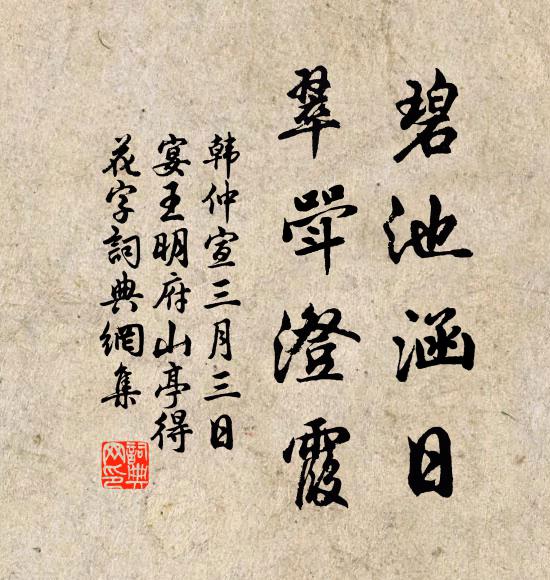 碧池涵日
翠斝澄霞
韩仲宣三月三日
宴王明府山亭得
花字詞典網集
詞典
网印